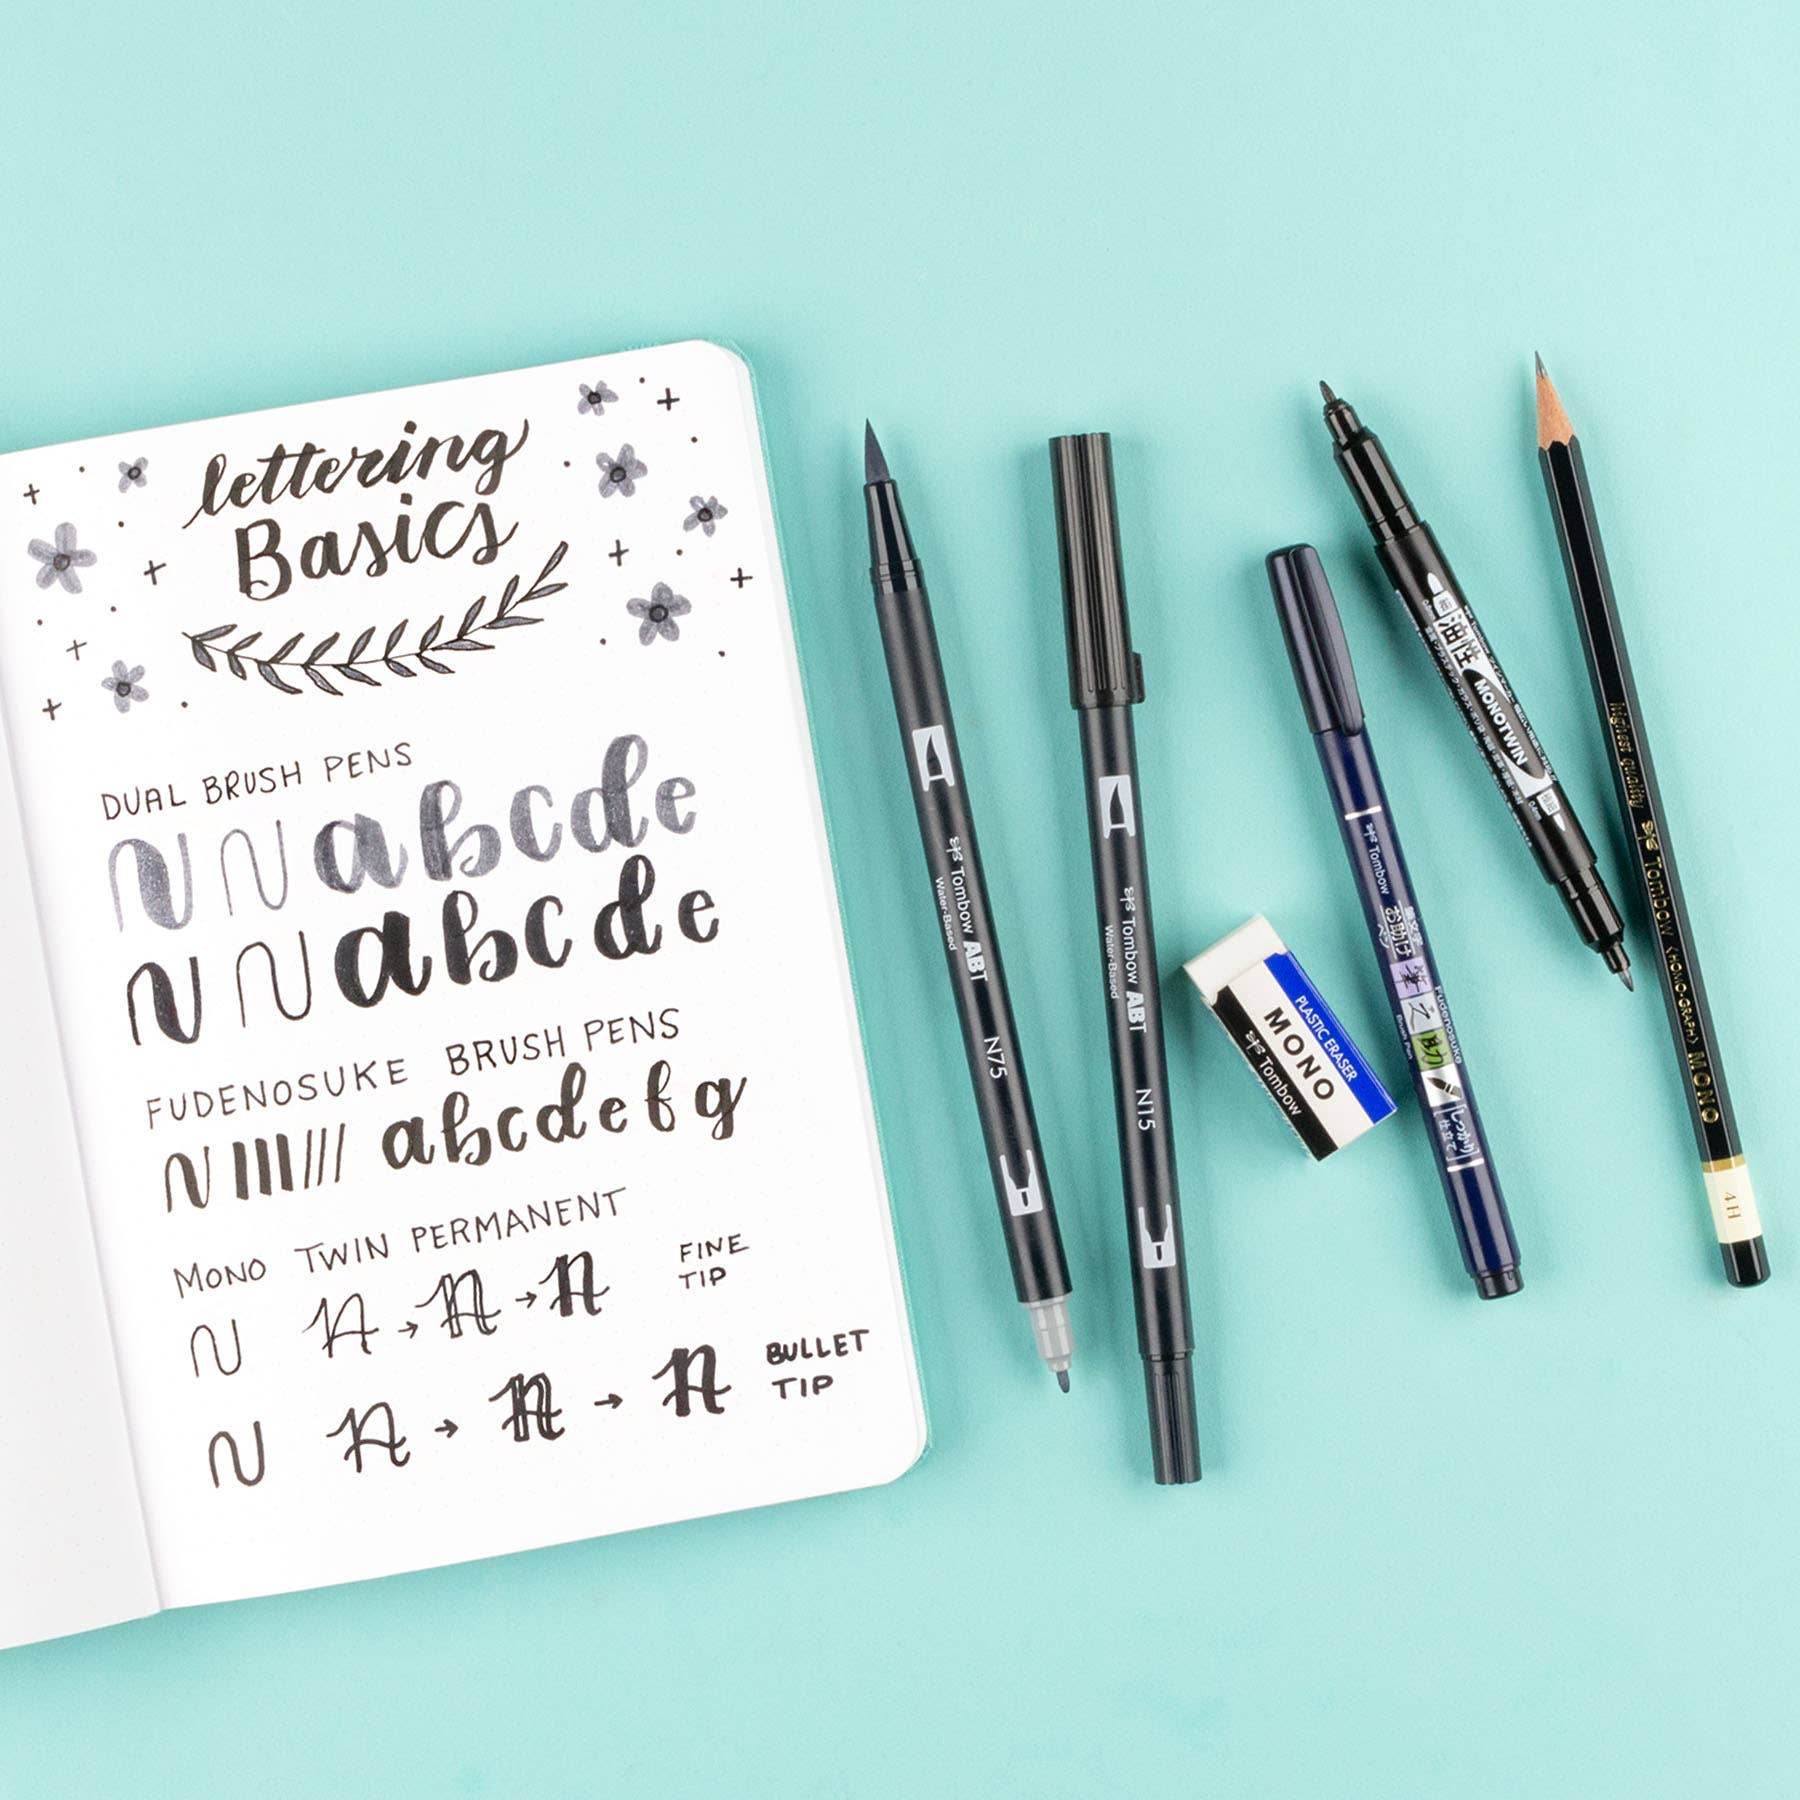 lettering
Basics
DUAL BRUSH PENS
N N abcde
N N abcde
FUDENOSUKE BRUSH PENS
N abcdefg
MONO TWIN PERMANENT
N N → N → N FINE TIP
N N → N → N BULLET TIP
Tombow ABT
Water-Based
N75
Tombow ABT
Water-Based
N15
PLASTIC ERASER
MONO
Tombow
Tombow
お助け
筆之助
Fudenosuke
Brush Pen
しっかり
仕立て
油性
MONOTWIN
highest quality Tombow <HOMO-GRAPH> MONO
4H